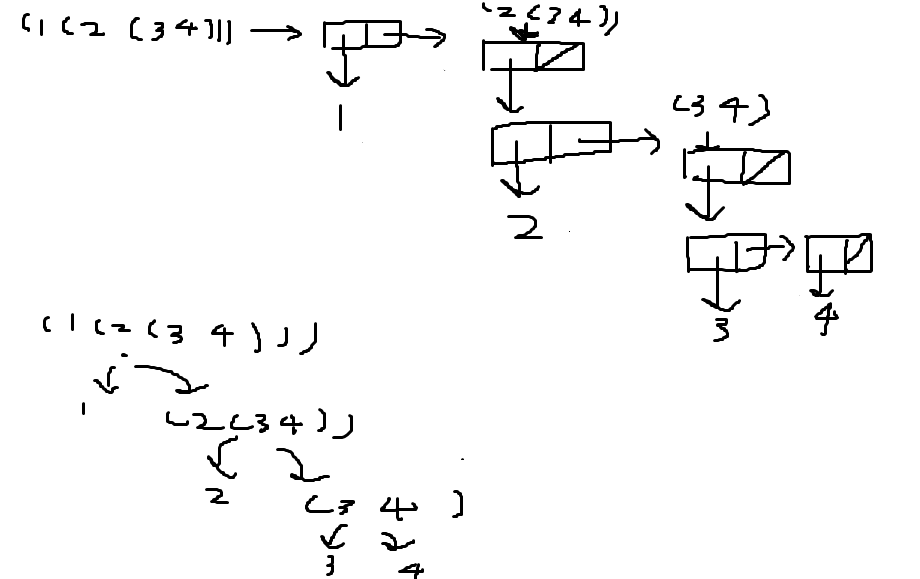 (1 (2 (3 4)))
(2 (3 4))
1
(3 4)
2
3
4
(1 (2 (3 4)))
1
(2 (3 4))
2
(3 4)
3
4